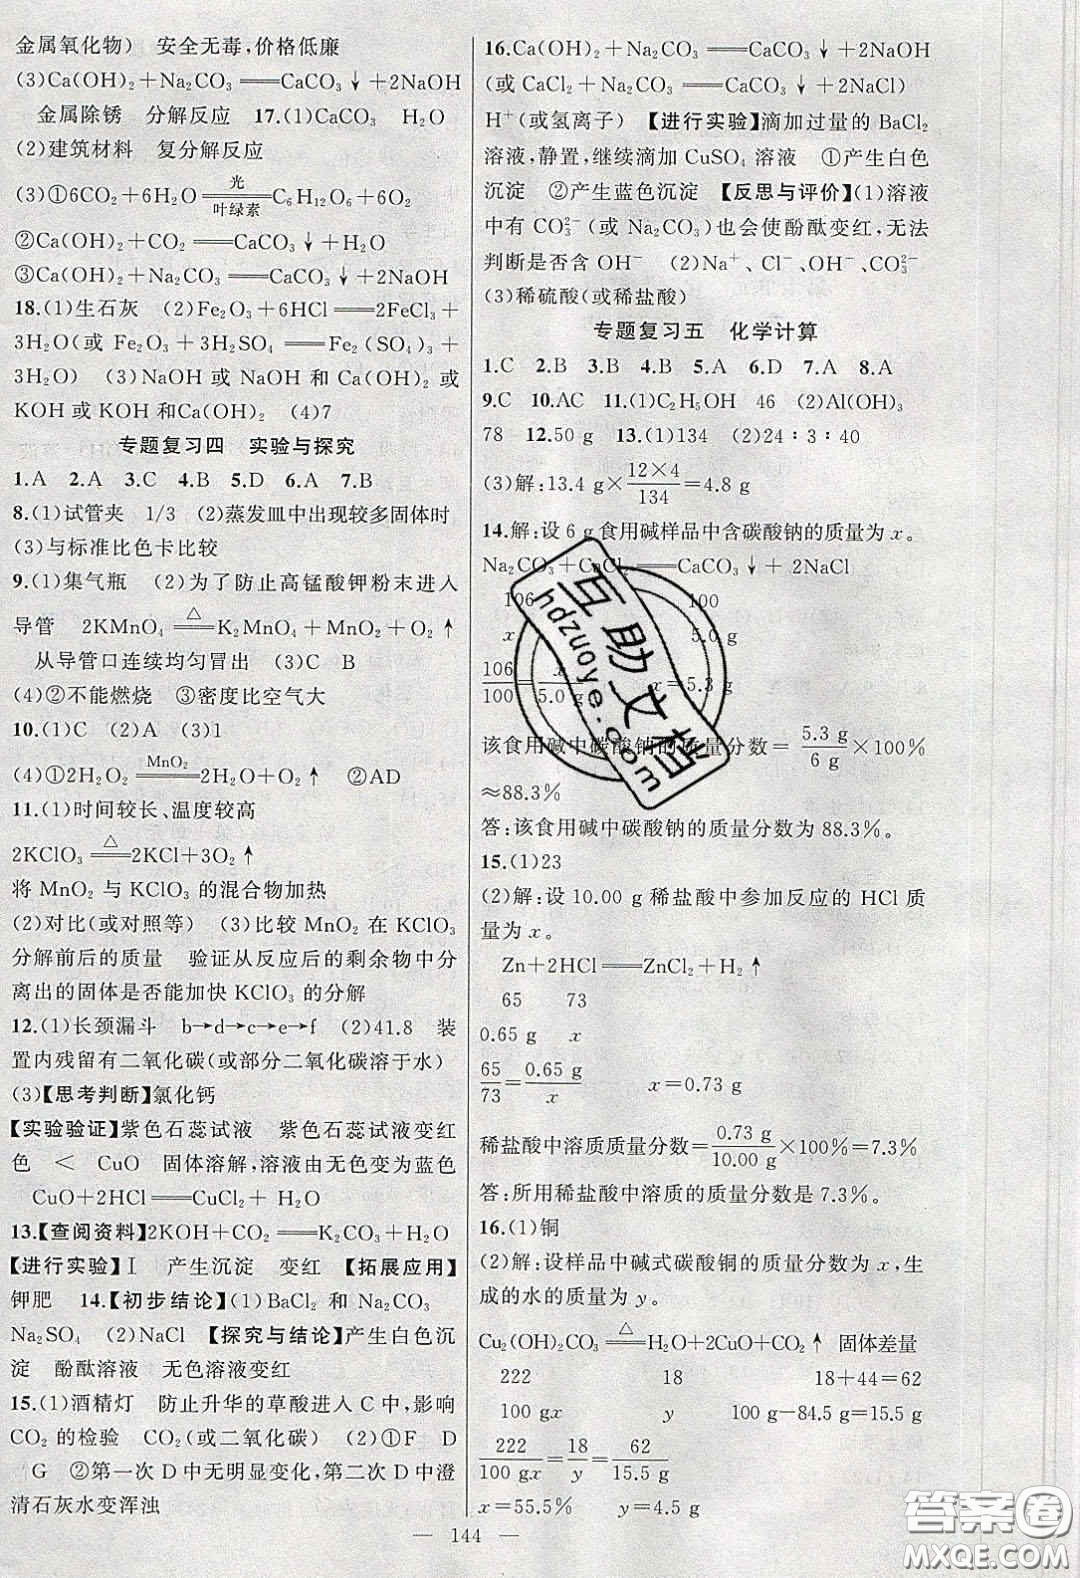 金属氧化物)　安全无毒,价格低廉
(3)Ca(OH)₂+Na₂CO₃══CaCO₃↓+2NaOH
金属除锈　分解反应　17.(1)CaCO₃　H₂O
(2)建筑材料　复分解反应
(3)①6CO₂+6H₂O ══(光/叶绿素) C₆H₁₂O₆+6O₂
②Ca(OH)₂+CO₂══CaCO₃↓+H₂O
③Ca(OH)₂+Na₂CO₃══CaCO₃↓+2NaOH
18.(1)生石灰　(2)Fe₂O₃+6HCl══2FeCl₃+
3H₂O(或 Fe₂O₃+3H₂SO₄══Fe₂(SO₄)₃+
3H₂O)　(3)NaOH 或 NaOH 和 Ca(OH)₂ 或
KOH 或 KOH 和Ca(OH)₂　(4)7
专题复习四　实验与探究
1.A　2.A　3.C　4.B　5.D　6.A　7.B
8.(1)试管夹　1/3　(2)蒸发皿中出现较多固体时
(3)与标准比色卡比较
9.(1)集气瓶　(2)为了防止高锰酸钾粉末进入
导管　2KMnO₄ ══(△) K₂MnO₄+MnO₂+O₂↑
从导管口连续均匀冒出　(3)C　B
(4)②不能燃烧　③密度比空气大
10.(1)C　(2)A　(3)1
(4)①2H₂O₂ ══(MnO₂) 2H₂O+O₂↑　②AD
11.(1)时间较长、温度较高
2KClO₃ ══(△) 2KCl+3O₂↑
将 MnO₂ 与 KClO₃ 的混合物加热
(2)对比(或对照等)　(3)比较 MnO₂ 在 KClO₃
分解前后的质量　验证从反应后的剩余物中分
离出的固体是否能加快 KClO₃ 的分解
12.(1)长颈漏斗　b→d→c→e→f　(2)41.8　装
置内残留有二氧化碳(或部分二氧化碳溶于水)
(3)【思考判断】氯化钙
【实验验证】紫色石蕊试液　紫色石蕊试液变红
色　＜　CuO　固体溶解,溶液由无色变为蓝色
CuO+2HCl══CuCl₂+H₂O
13.【查阅资料】2KOH+CO₂══K₂CO₃+H₂O
【进行实验】Ⅰ　产生沉淀　变红　【拓展应用】
钾肥　14.【初步结论】(1)BaCl₂ 和 Na₂CO₃
Na₂SO₄　(2)NaCl　【探究与结论】产生白色沉
淀　酚酞溶液　无色溶液变红
15.(1)酒精灯　防止升华的草酸进入 C 中,影响
CO₂ 的检验　CO₂(或二氧化碳)　(2)①F　D
G　②第一次 D 中无明显变化,第二次 D 中澄
清石灰水变浑浊
16.Ca(OH)₂+Na₂CO₃══CaCO₃↓+2NaOH
(或 CaCl₂+Na₂CO₃══CaCO₃↓+2NaCl)
H⁺(或氢离子)　【进行实验】滴加过量的 BaCl₂
溶液,静置,继续滴加 CuSO₄ 溶液　①产生白色
沉淀　②产生蓝色沉淀　【反思与评价】(1)溶液
中有 CO₃²⁻(或 Na₂CO₃)也会使酚酞变红,无法
判断是否含 OH⁻　(2)Na⁺、Cl⁻、OH⁻、CO₃²⁻
(3)稀硫酸(或稀盐酸)
专题复习五　化学计算
1.C　2.B　3.B　4.B　5.A　6.D　7.A　8.A
9.C　10.AC　11.(1)C₂H₅OH　46　(2)Al(OH)₃
78　12.50 g　13.(1)134　(2)24∶3∶40
(3)解:13.4 g×(12×4)/134=4.8 g
14.解:设 6 g 食用碱样品中含碳酸钠的质量为 x。
Na₂CO₃+CaCl₂══CaCO₃↓+2NaCl
106　100
x　5.0 g
106/100=x/5.0 g　x=5.3 g
该食用碱中碳酸钠的质量分数=5.3 g/6 g×100%
≈88.3%
答:该食用碱中碳酸钠的质量分数为 88.3%。
15.(1)23
(2)解:设 10.00 g 稀盐酸中参加反应的 HCl 质
量为 x。
Zn+2HCl══ZnCl₂+H₂↑
65　73
0.65 g　x
65/73=0.65 g/x　x=0.73 g
稀盐酸中溶质质量分数=0.73 g/10.00 g×100%=7.3%
答:所用稀盐酸中溶质的质量分数是 7.3%。
16.(1)铜
(2)解:设样品中碱式碳酸铜的质量分数为 x,生
成的水的质量为 y。
Cu₂(OH)₂CO₃ ══(△) H₂O+2CuO+CO₂↑　固体差量
222　18　18+44=62
100 gx　y　100 g-84.5 g=15.5 g
222/100 gx=18/y=62/15.5 g
x=55.5%　y=4.5 g
— 144 —
互助文档
hdzuoye.com
答案圈
MXQE.COM